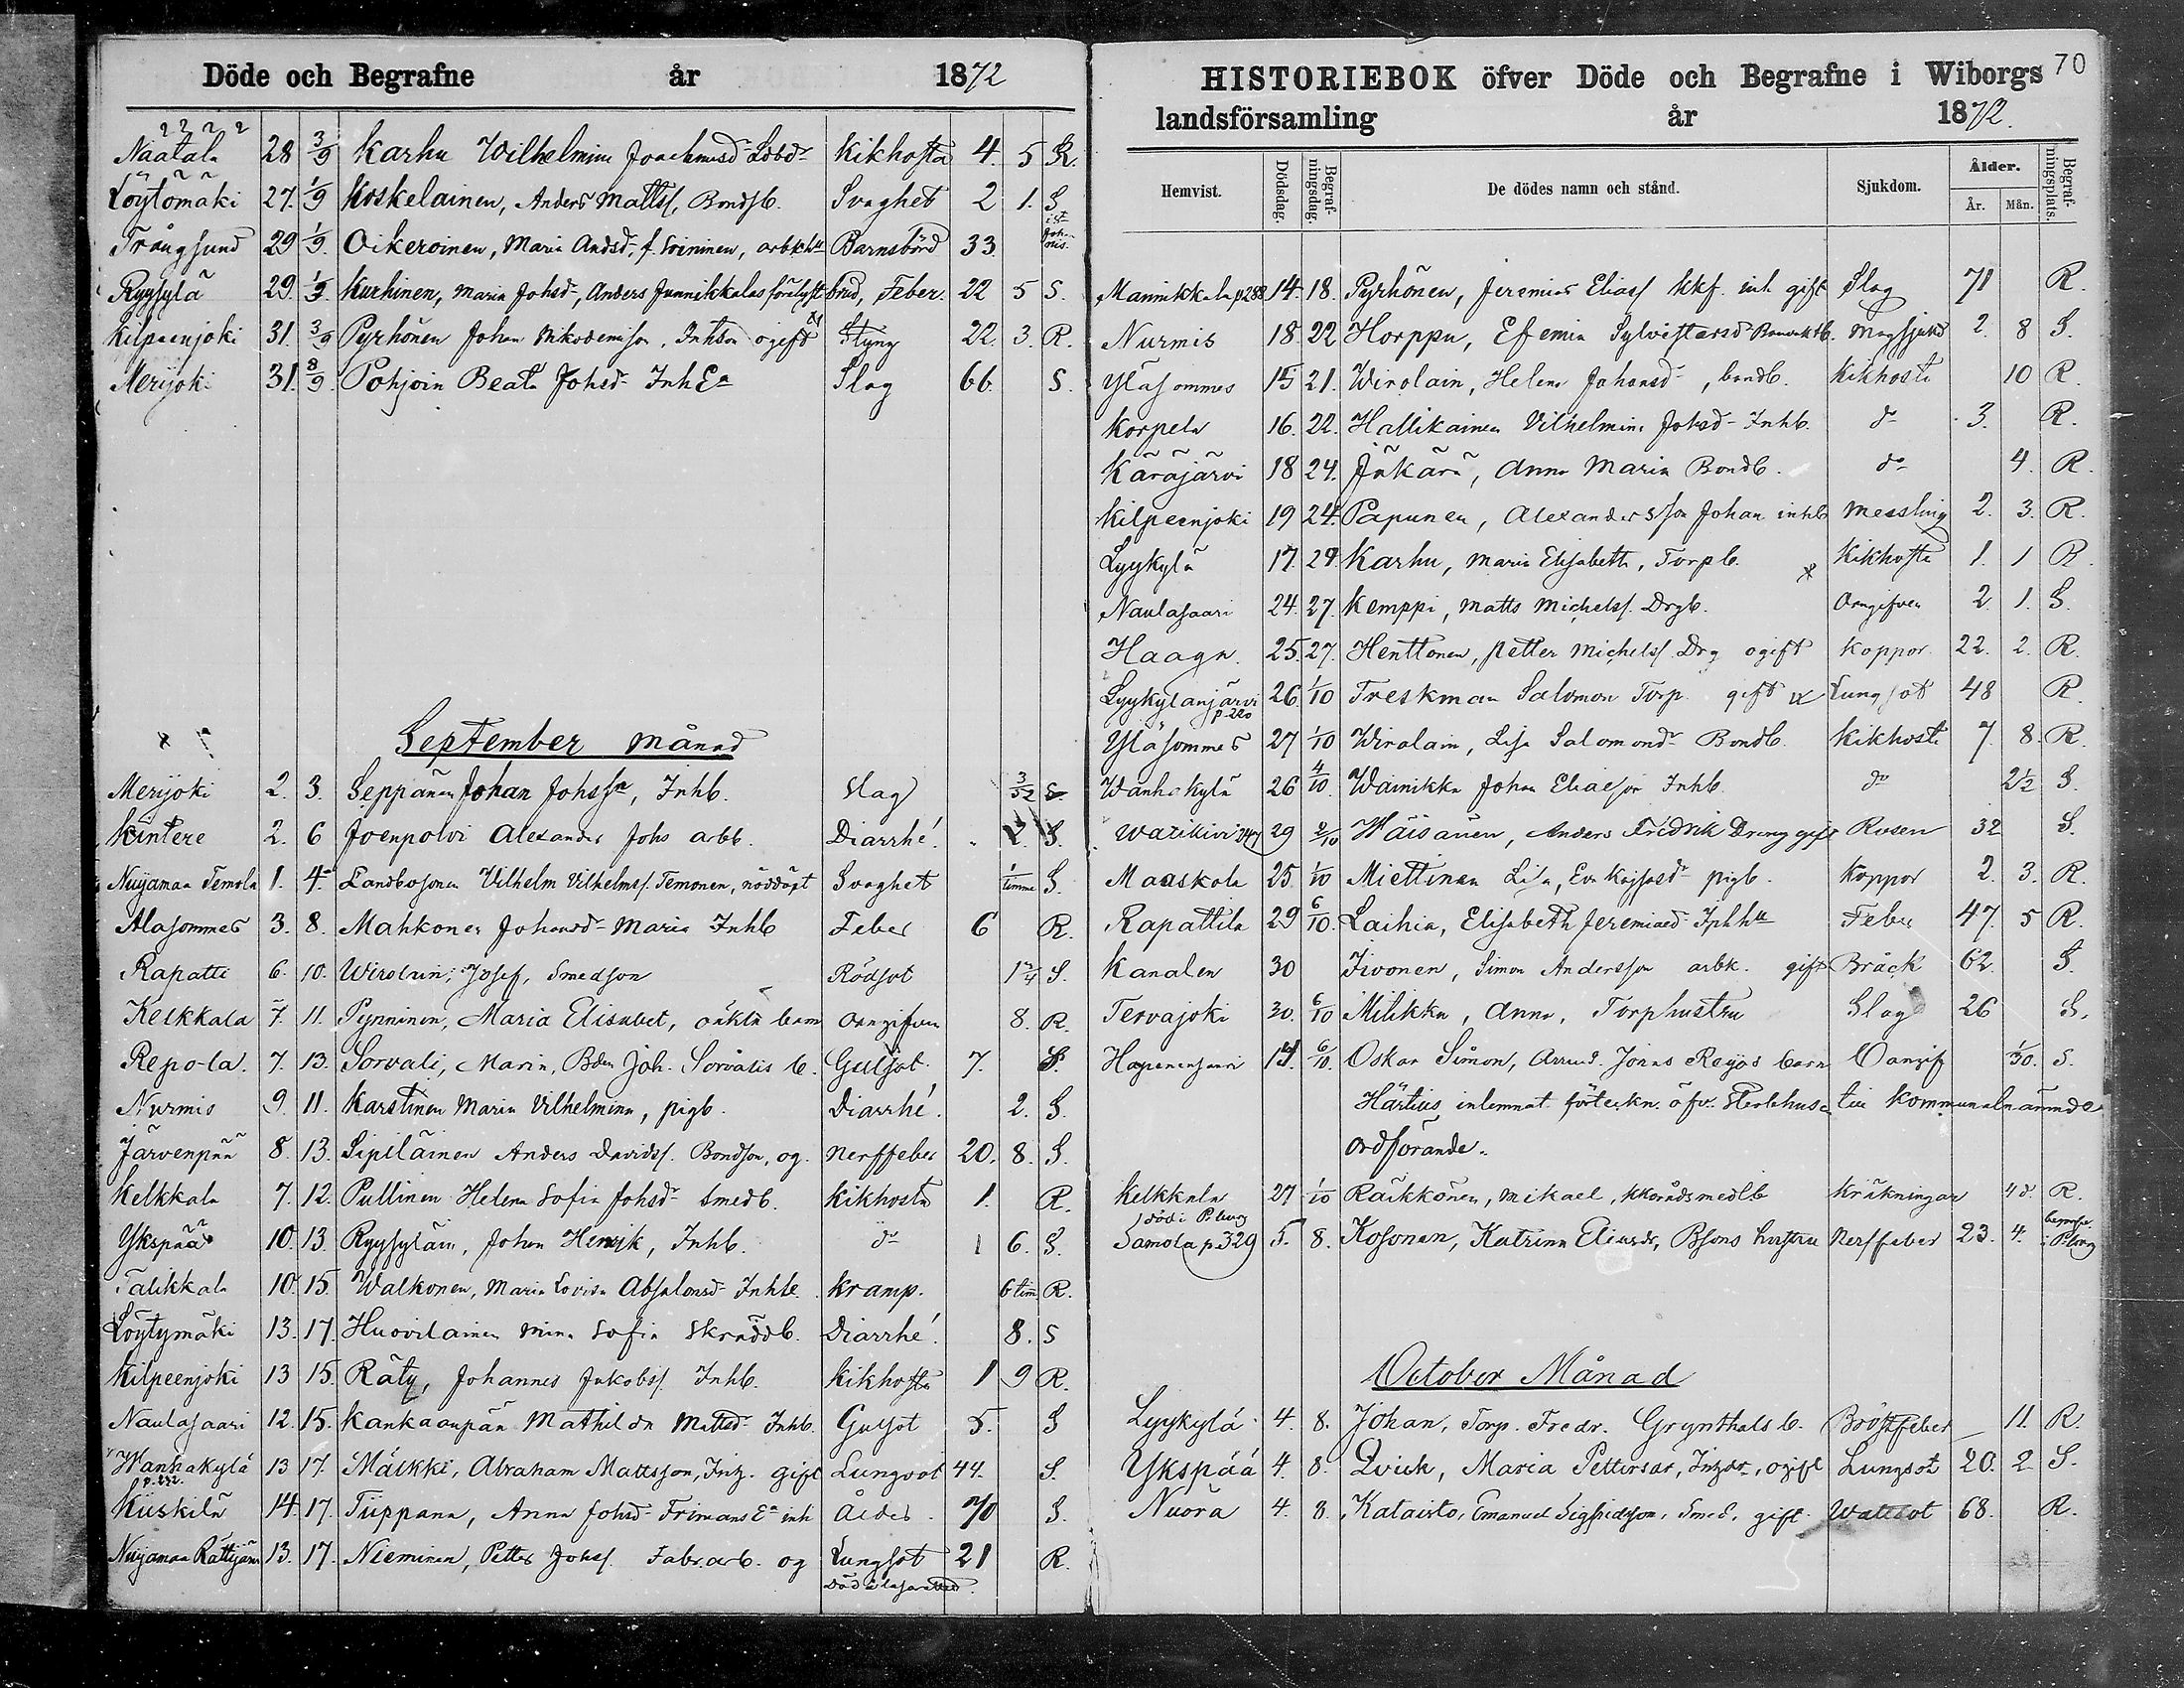 Döde och Begrafne år 1872
Näätälä 28 3/9 Karhu Wilhelmina Joachimsd Lsbdr Kikhosta 4. 5 R.
Löytömäki 27. 1/9 Koskelainen, Anders Mattss. Bondsb. Svaghet 2 1. S
Trångsund 29 1/9. Oikeroinen, Maria Andsd f. Soininen, arbkhu Barnsbörd 33. i St Johannis.
Ryysylä 29. 1/9. Kurhinen, Maria Johsd, Anders Junnikkalas förelyst brud, Feber. 22 5 S.
Kilpeenjoki 31. 3/9 Pyrhönen Johan Nikodemisson, Inhson ogift Styng 22. 3. R.
Merijoki 31. 8/9. Pohjoin Beata Johsd Inh Ea Slag 66. S.
September månad
Merijoki 2. 3. Seppänen Johan Johssn, Inhb. Slag 3/52 S.
Kintere 2. 6 Joenpolvi Alexander Johs arbb. Diarrhé. 2. S.
Nuijamaa Temola 1. 4. Landbosonen Vilhelm Vilhelmss. Temonen, nöddöpt Svaghet 1/timme S.
Alasommes 3. 8. Mahkonen Johansd Maria Inhb Feber 6 R.
Rapatti 6. 10. Wirolain, Josef, Smedson Rödsot 1 3/4 S.
Kelkkala 7. 11. Pynninen, Maria Elisabet, oäkta barn oangifven 8. R.
Repo-la. 7. 13. Sorvali, Maria, Bden Joh. Sorvalis b. Gulsot 7. S.
Nurmis 9. 11. Karstinen Maria Vilhelmina, pigb. Diarrhé. 2. S.
Järvenpää 8. 13. Sipiläinen Anders Davidss. Bondson, og. Nerffeber 20. 8. S.
Kelkkala 7. 12. Pullinen Helena Sofia Johsd Smedb. Kikhosta 1. R.
Ykspää 10. 13. Ryysyläin, Johan Henrik, Inhb. do 1 6. S.
Talikkala 10. 15. Walkonen, Maria Lovisa Absalonsd Inhb. Kramp. 6 tim. R.
Löytymäki 13. 17. Huovilainen Mina Sofia Skräddb. Diarrhé. 8. S
Kilpeenjoki 13 15. Räty, Johannes Jakobss. Inhb. Kikhosta 1 9 R.
Naulasaari 12. 15. Kankaanpää Mathilda Mattsd Inhb. Gulsot 5. S
Wanhakylä p. 232. 13 17. Mälkki, Abraham Mattsson, Inhg. gift Lungsot 44. S.
Kiiskilä 14. 17. Tiippana, Anna Johsd Frimans Ea inh Ålder. 70 S.
Nuijamaa Rättijärvi 13. 17. Nieminen, Petter Johss. Fabr.arb. og Lungsot 21 R.
död å lasarettet.
70
HISTORIEBOK öfver Döde och Begrafne i Wiborgs
landsförsamling år 1872.
Hemvist. Dödsdag. Begrafningsdag. De dödes namn och stånd. Sjukdom. Ålder. År. Mån. Begrafningsplats.
Mannikkala p 288 14. 18. Pyrhönen, Jeremias Eliass kkf. inh gift Slag 71 R.
Nurmis 18. 22 Horppu, Efemia Sylvestersd b. Magsjukd 2. 8 S.
Yläsommes 15 21. Wirolain, Helena Johansd, bondb. Kikhosta 10 R.
Korpela 16. 22. Hallikainen Vilhelmina Johsd Inhb. do 3. R.
Käräjärvi 18 24. Jäkärä, Anna Maria Bondb. do 4. R.
Kilpeenjoki 19 24. Papunen, Alexandersson Johan inhb Messling 2. 3. R.
Lyykylä 17. 24. Karhu, Maria Elisabeth, Torpb. Kikhosta 1. 1 R.
Naulasaari 24. 27. Kemppi, Matts Michelss. Drgb. Oangifven 2. 1. S.
Haaga. 25. 27. Henttonen, Petter Michelss. Drg ogift Koppor 22. 2. R.
Lyykylänjärvi p. 220 26. 1/10 Treskman Salomon Torp. gift Lungsot 48 R.
Yläsommes 27 1/10 Wirolain, Lisa Salomond Bondb. Kikhosta 7. 8. R.
Wanhakylä 26 4/10. Wainikka Johan Eliasson Inhb. do 2 1/2 S.
Watikivi 247 29 2/10 Wäisänen, Anders Fridrik Dreng gift Rosen 32 S.
Maaskola 25. 1/10 Miettinen Lisa, Eva Kajsasd pigb. Koppor 2. 3. R.
Rapattila 29 6/10. Laihia, Elisabeth Jeremiaed Inhhu Feber 47. 5 R.
Kanalen 30 Iivonen, Simon Andersson arbk. gift Bråck 62. S.
Tervajoki 30. 6/10 Milikka, Anna, Torphustru Slag 26 S.
Hapenensaari 14. 6/10. Oskar Simon, Arrend. Jonas Reijos barn Oangif 1/30. S.
Härtius inlemnat förteckn. öfv. Sterbhusen till Kommunalnämnde
ordförande.
Kelkkala 27 1/10 Räikkönen, Mikael, kkorådsmedlb Kräkningar 4 d. R.
död i P.burg
Samola p 329 5. 8. Kosonen, Katrina Eliasdr, Bsons hustru Nerffeber 23. 4. begrafv. i P.burg
October Månad
Lyykylä 4. 8. Johan, Torp. Fredr. Grynthals b. Bröstfeber — 11. R.
Ykspää 4. 8. Qvick, Maria Pettersdr, Inhdr, ogift Lungsot 20. 2 S.
Nuora 4. 8. Kataisto, Emanuel Sigfridsson, Smed, gift. Wattsot 68. R.